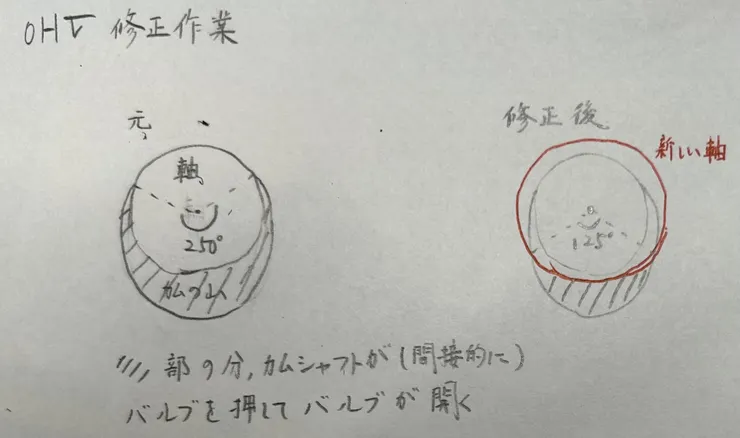 OHV 修正作業
元
修正後
軸
新しい軸
250°
125°
カムの山
//// 部の分,カムシャフトが(間接的に)
バルブを押してバルブが開く